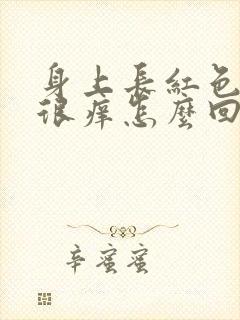 身上長紅色
很癢怎麼回
辛蜜蜜